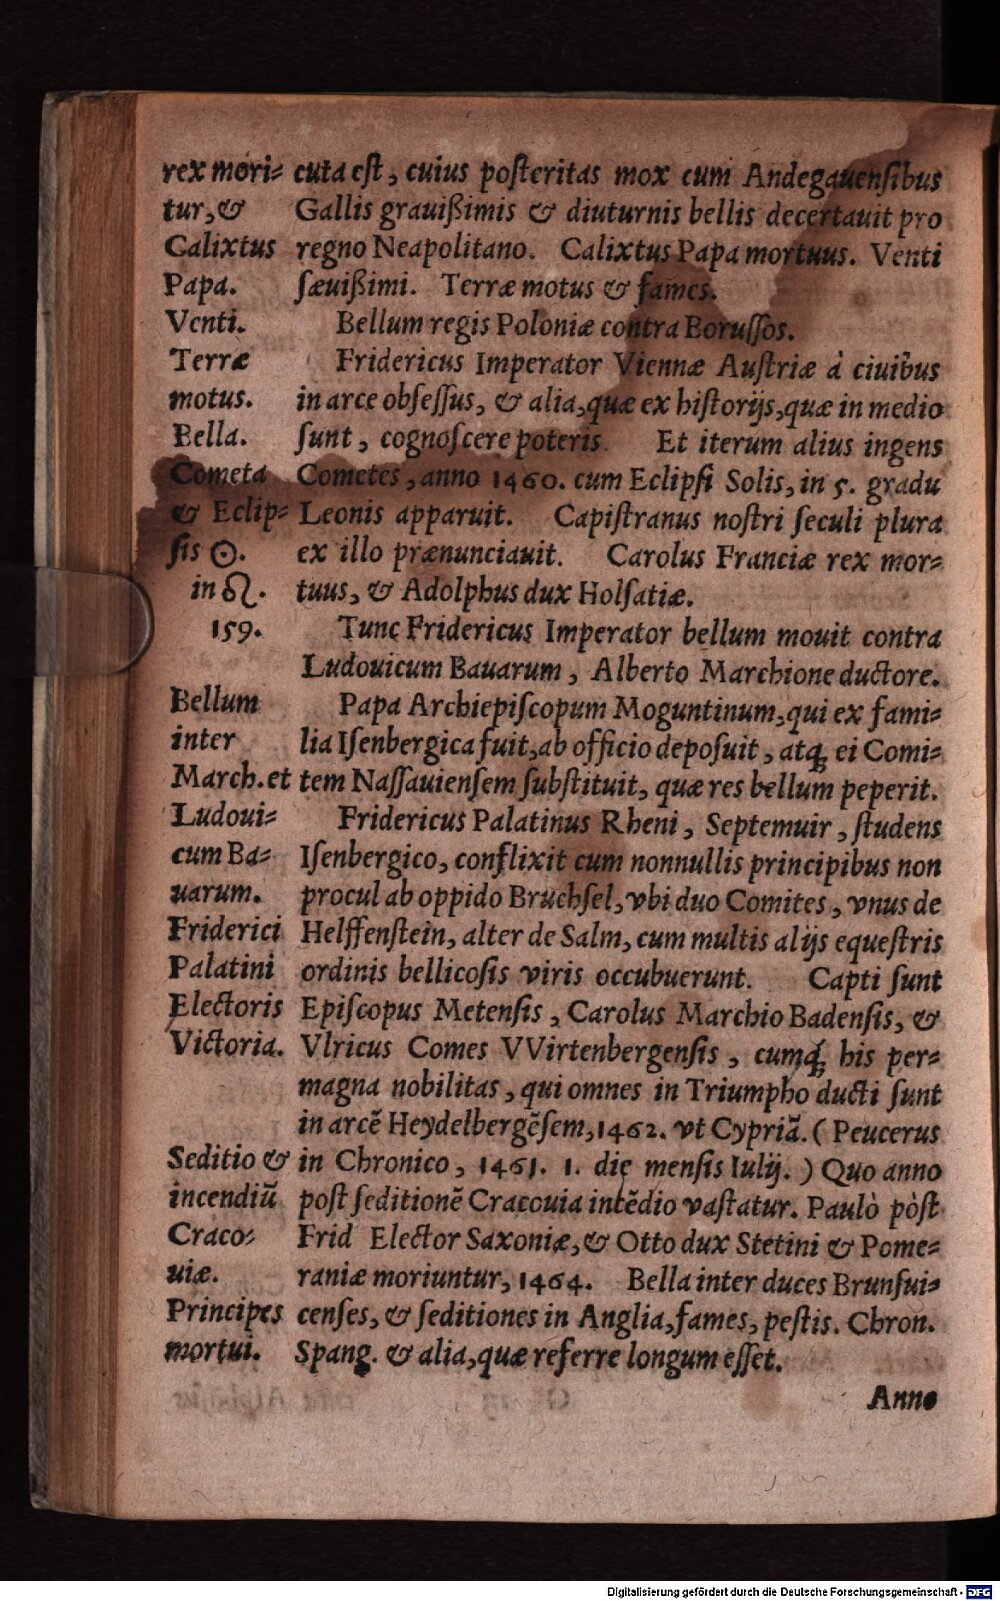 rex mori=
tur, &
Calixtus
Papa.
Venti.
Terræ
motus.
Bella.
Cometa
& Eclip=
ſis ☉.
in ♌.
159.
Bellum
inter
March. et
Ludoui=
cum Ba=
uarum.
Friderici
Palatini
Electoris
Victoria.
Seditio &
incendiũ
Craco=
uiæ.
Principes
mortui.
cuta eſt, cuius poſteritas mox cum Andegauenſibus
Gallis grauißimis & diuturnis bellis decertauit pro
regno Neapolitano. Calixtus Papa mortuus. Venti
ſæuißimi. Terræ motus & fames.
Bellum regis Poloniæ contra Boruſſos.
Fridericus Imperator Viennæ Auſtriæ à ciuibus
in arce obſeſſus, & alia, quæ ex hiſtorijs, quæ in medio
ſunt, cognoſcere poteris. Et iterum alius ingens
Cometes, anno 1460. cum Eclipſi Solis, in 5. gradu
Leonis apparuit. Capiſtranus noſtri ſeculi plura
ex illo prænunciauit. Carolus Franciæ rex mor=
tuus, & Adolphus dux Holſatiæ.
Tunc Fridericus Imperator bellum mouit contra
Ludouicum Bauarum, Alberto Marchione ductore.
Papa Archiepiſcopum Moguntinum, qui ex fami=
lia Iſenbergica fuit, ab officio depoſuit, atq́; ei Comi=
tem Naſſauienſem ſubſtituit, quæ res bellum peperit.
Fridericus Palatinus Rheni, Septemuir, ſtudens
Iſenbergico, conflixit cum nonnullis principibus non
procul ab oppido Bruchſel, vbi duo Comites, vnus de
Helffenſtein, alter de Salm, cum multis alijs equeſtris
ordinis bellicoſis viris occubuerunt. Capti ſunt
Epiſcopus Metenſis, Carolus Marchio Badenſis, &
Vlricus Comes VVirtenbergenſis, cumq́; his per=
magna nobilitas, qui omnes in Triumpho ducti ſunt
in arcẽ Heydelbergẽſem, 1462. vt Cypriã. (Peucerus
in Chronico, 1461. 1. die menſis Iulij.) Quo anno
poſt ſeditionẽ Cracouia incẽdio vaſtatur. Paulò pòſt
Frid Elector Saxoniæ, & Otto dux Stetini & Pome=
raniæ moriuntur, 1464. Bella inter duces Brunſui=
cenſes, & ſeditiones in Anglia, fames, peſtis. Chron.
Spang. & alia, quæ referre longum eſſet.
Anno
Digitalisierung gefördert durch die Deutsche Forschungsgemeinschaft - DFG